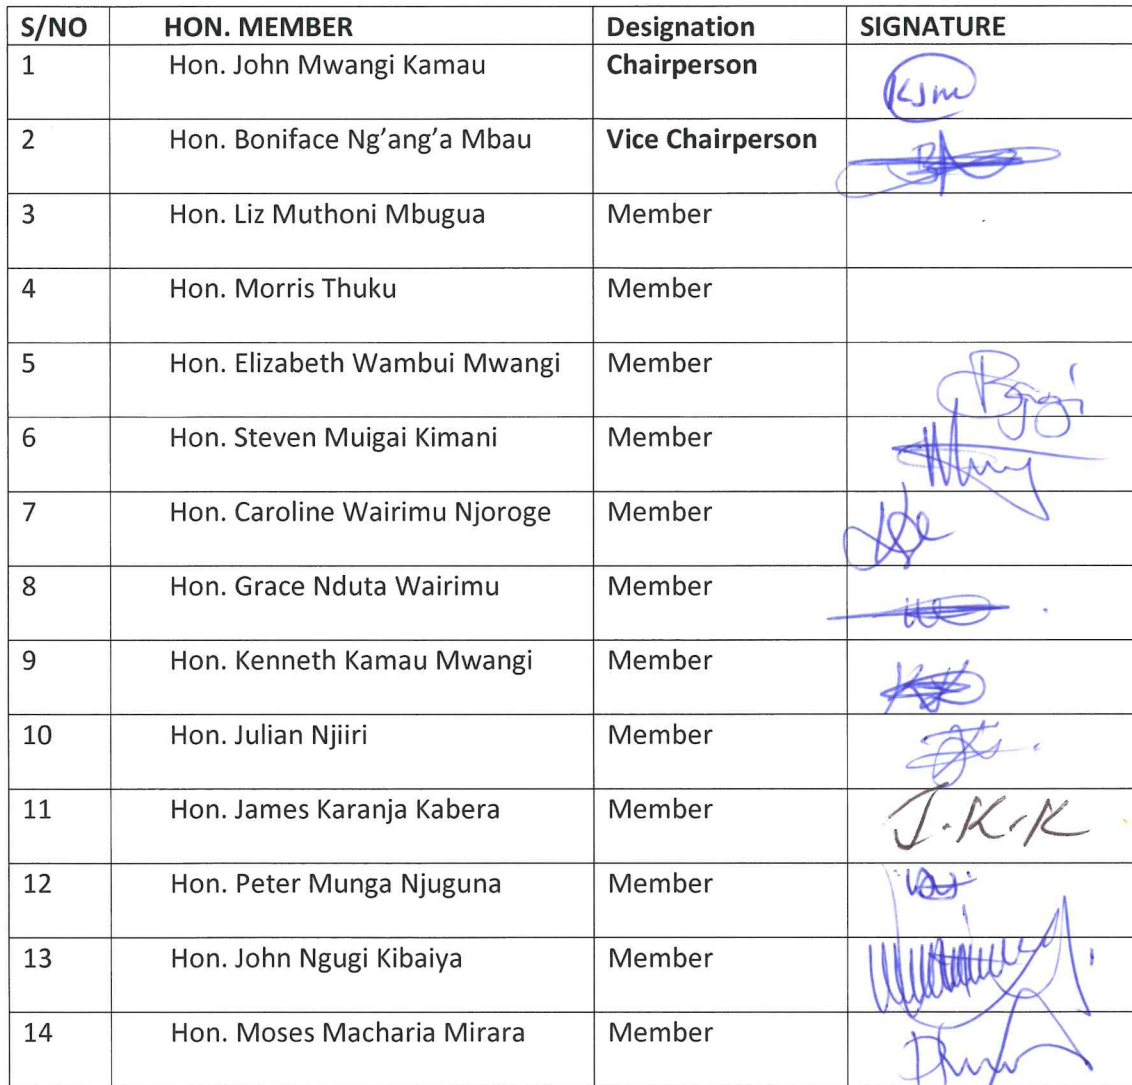 S/NO HON. MEMBER Designation SIGNATURE
1 Hon. John Mwangi Kamau Chairperson KJM
2 Hon. Boniface Ng’ang’a Mbau Vice Chairperson
3 Hon. Liz Muthoni Mbugua Member
4 Hon. Morris Thuku Member
5 Hon. Elizabeth Wambui Mwangi Member
6 Hon. Steven Muigai Kimani Member
7 Hon. Caroline Wairimu Njoroge Member
8 Hon. Grace Nduta Wairimu Member
9 Hon. Kenneth Kamau Mwangi Member
10 Hon. Julian Njiiri Member
11 Hon. James Karanja Kabera Member J.K.K
12 Hon. Peter Munga Njuguna Member
13 Hon. John Ngugi Kibaiya Member
14 Hon. Moses Macharia Mirara Member